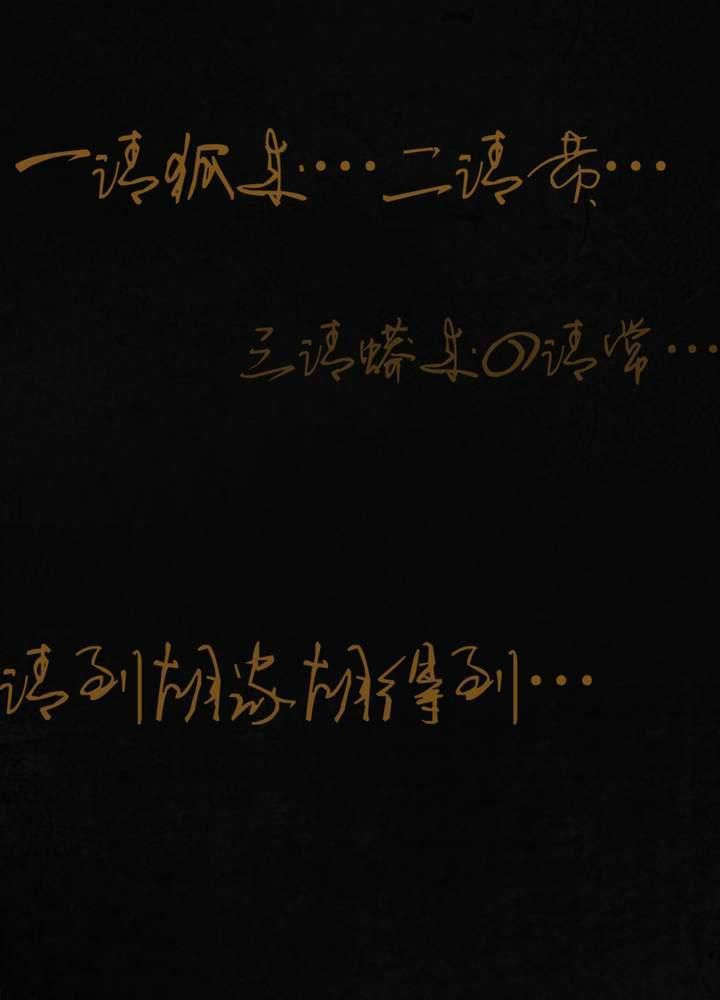 一请狐来…二请黄…
三请蟒来四请常…
请到胡家胡得到…